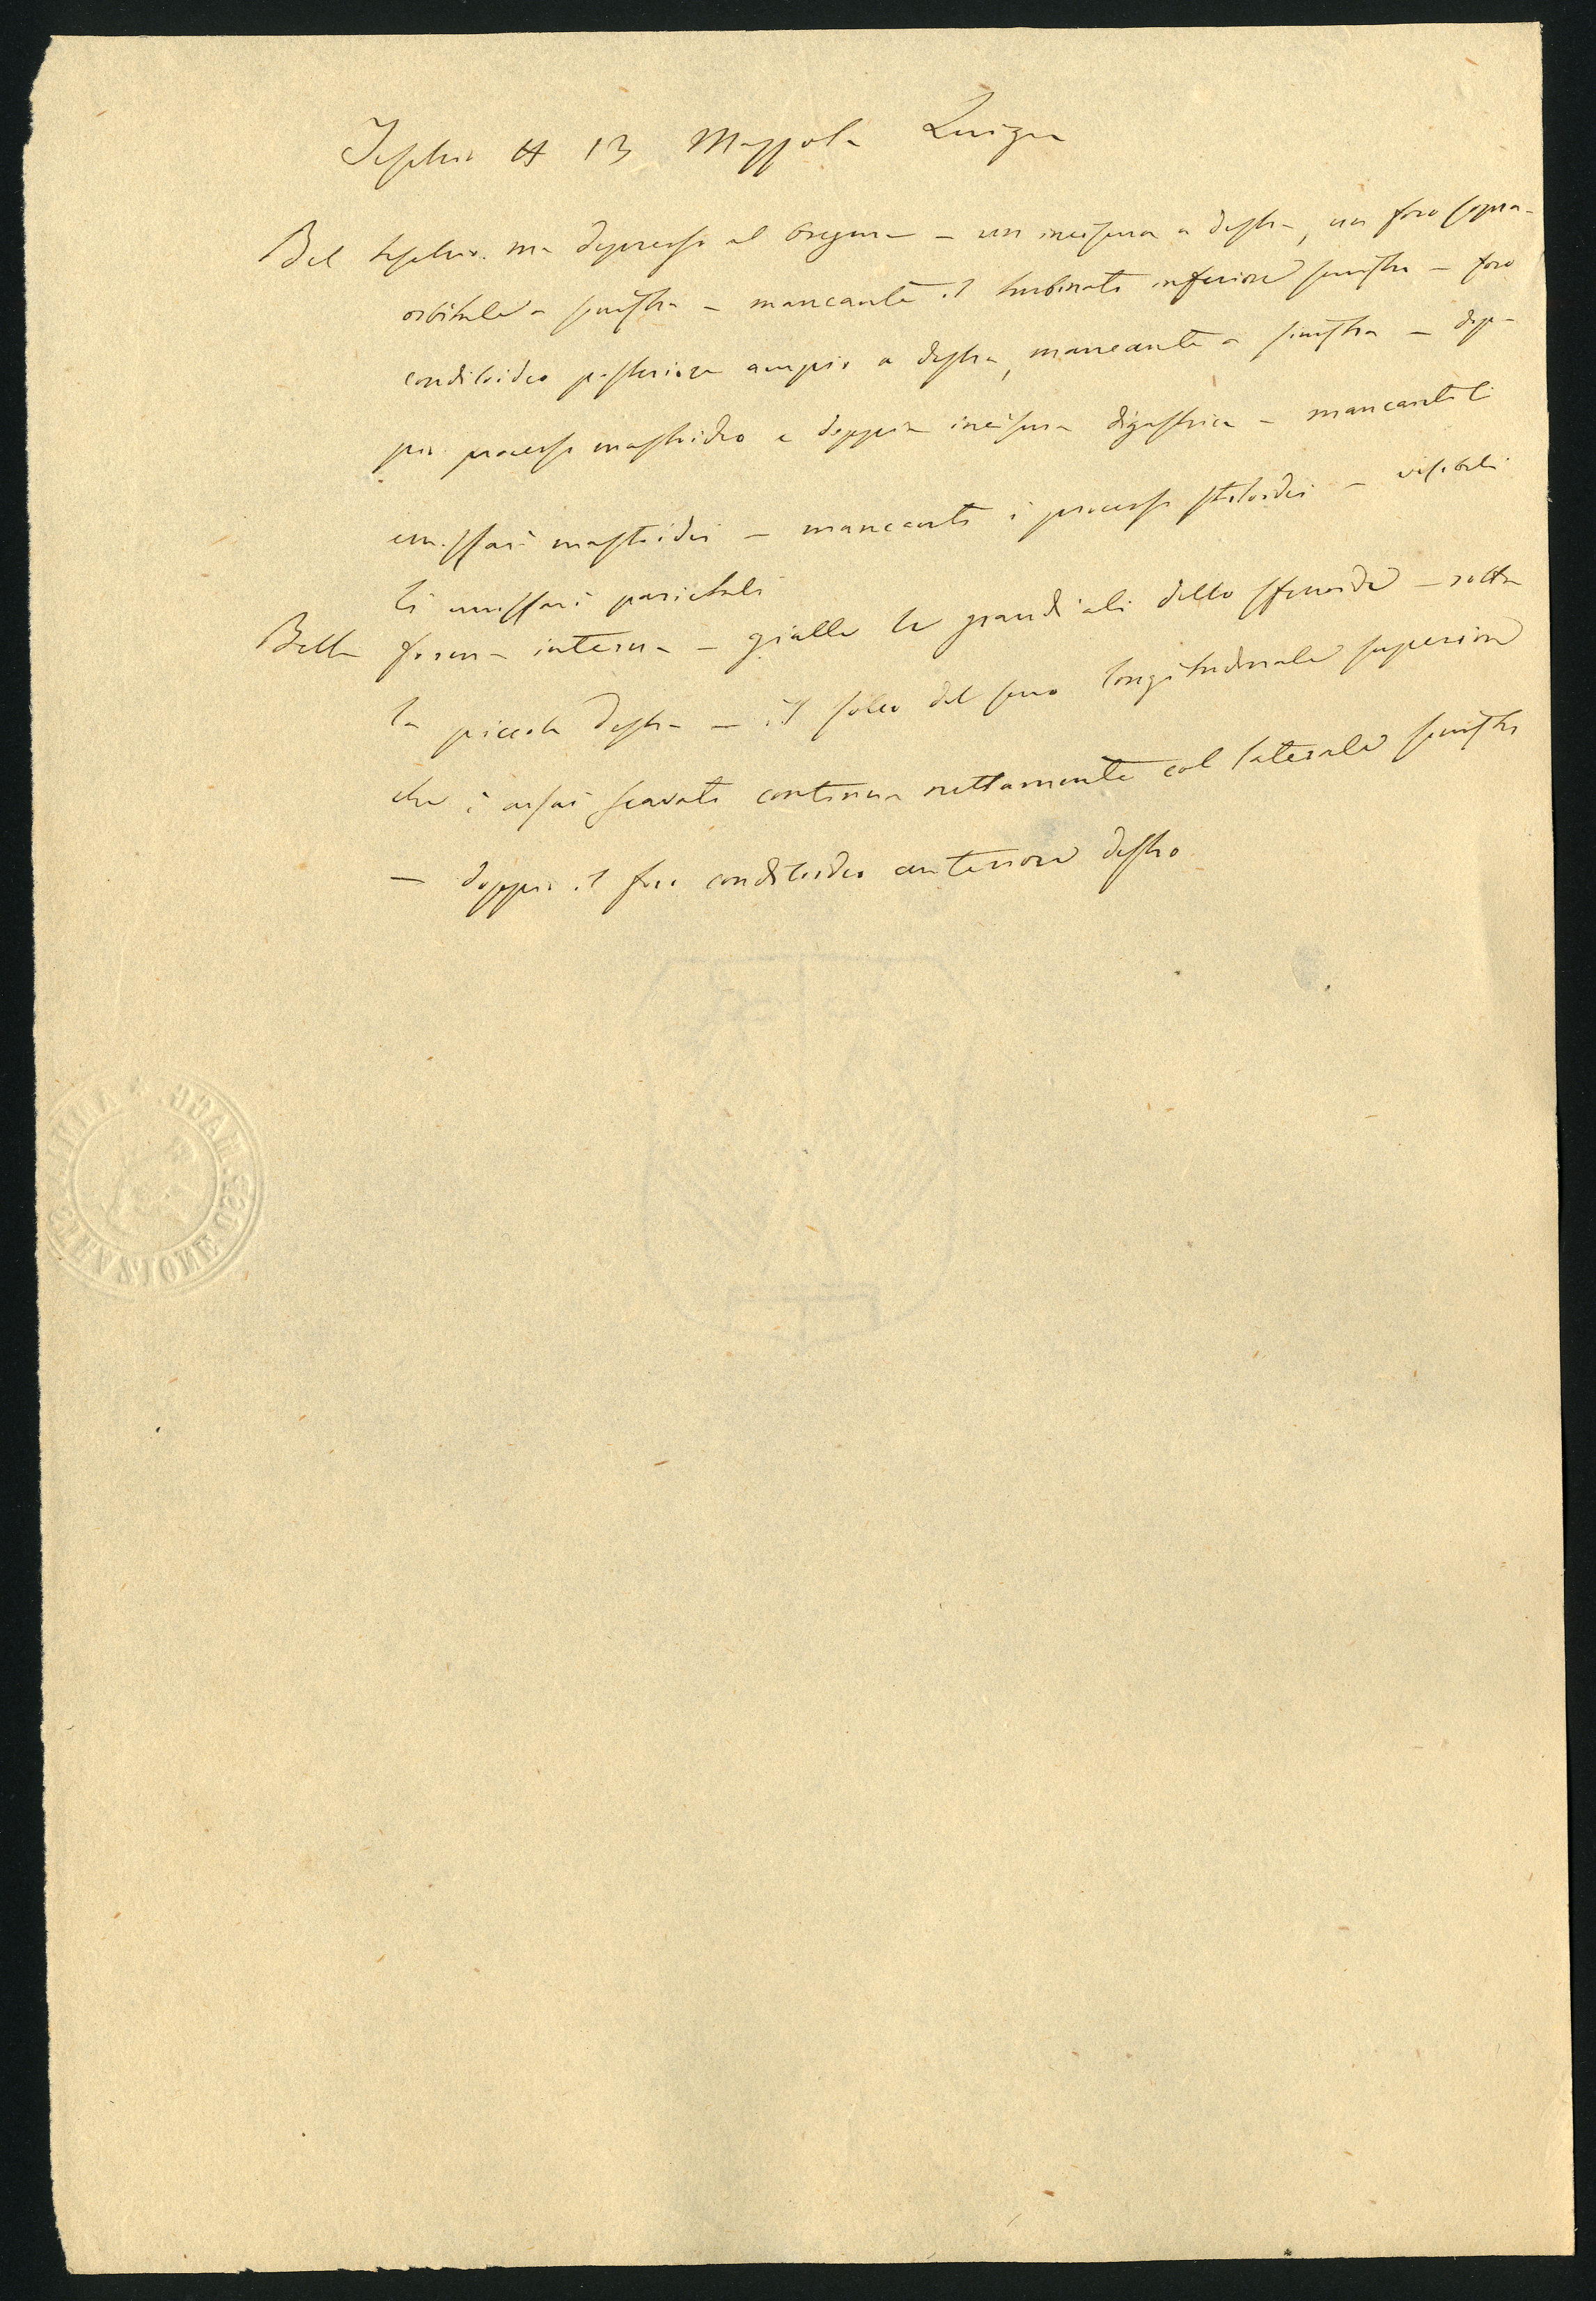 Teschio H 13 Mazzola Luigia
Bel teschio ma depresso al bregma – un incisura a destra, un foro sopra-
orbitale a sinistra – mancante il turbinato inferiore sinistro – foro
condiloideo posteriore ampio a destra, mancante a sinistra – dop-
pio processo mastoideo e doppia incisura digastrica – mancanti li
emissari mastoidei – mancanti i processi stiloidei – visibili
li emissari parietali
Bella forma interna – gialle le grandi ali dello sfenoide – rotta
la piccola destra – il solco del seno longitudinale superiore
che è assai scavato continua nettamente col laterale sinistro
– doppio il foro condiloideo anteriore destro